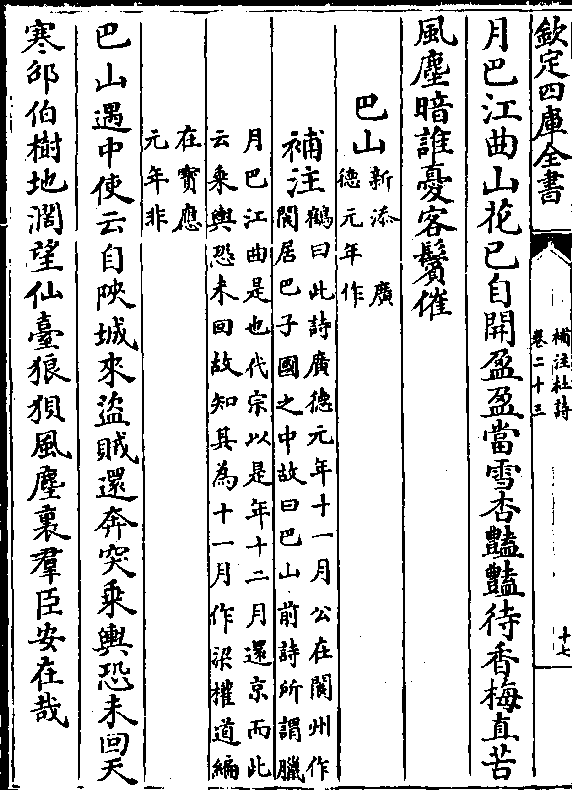 欽定四庫全書
補注杜詩
卷二十三
十七
月巴江曲山花已自開盈盈當雪杏豔豔待香梅直苦
風塵暗誰憂客鬢催
巴山新添 廣
德元年作
補注鶴曰此詩廣德元年十一月公在閬州作
閬居巴子國之中故曰巴山前詩所謂臘
月巴江曲是也代宗以是年十二月還京而此
云乘輿恐未回故知其為十一月作梁權道編
在寳應
元年非
巴山遇中使云自陜城來盜賊還奔突乘輿恐未回天
寒邵伯樹地濶望仙臺狼狽風塵裏羣臣安在哉